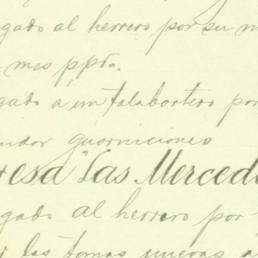 gado al herrero por su m
mes ppdo.
gado á un talabartero por
guarniciones
resa "Las Merced
gado al herrero por
las tomas nuevas a